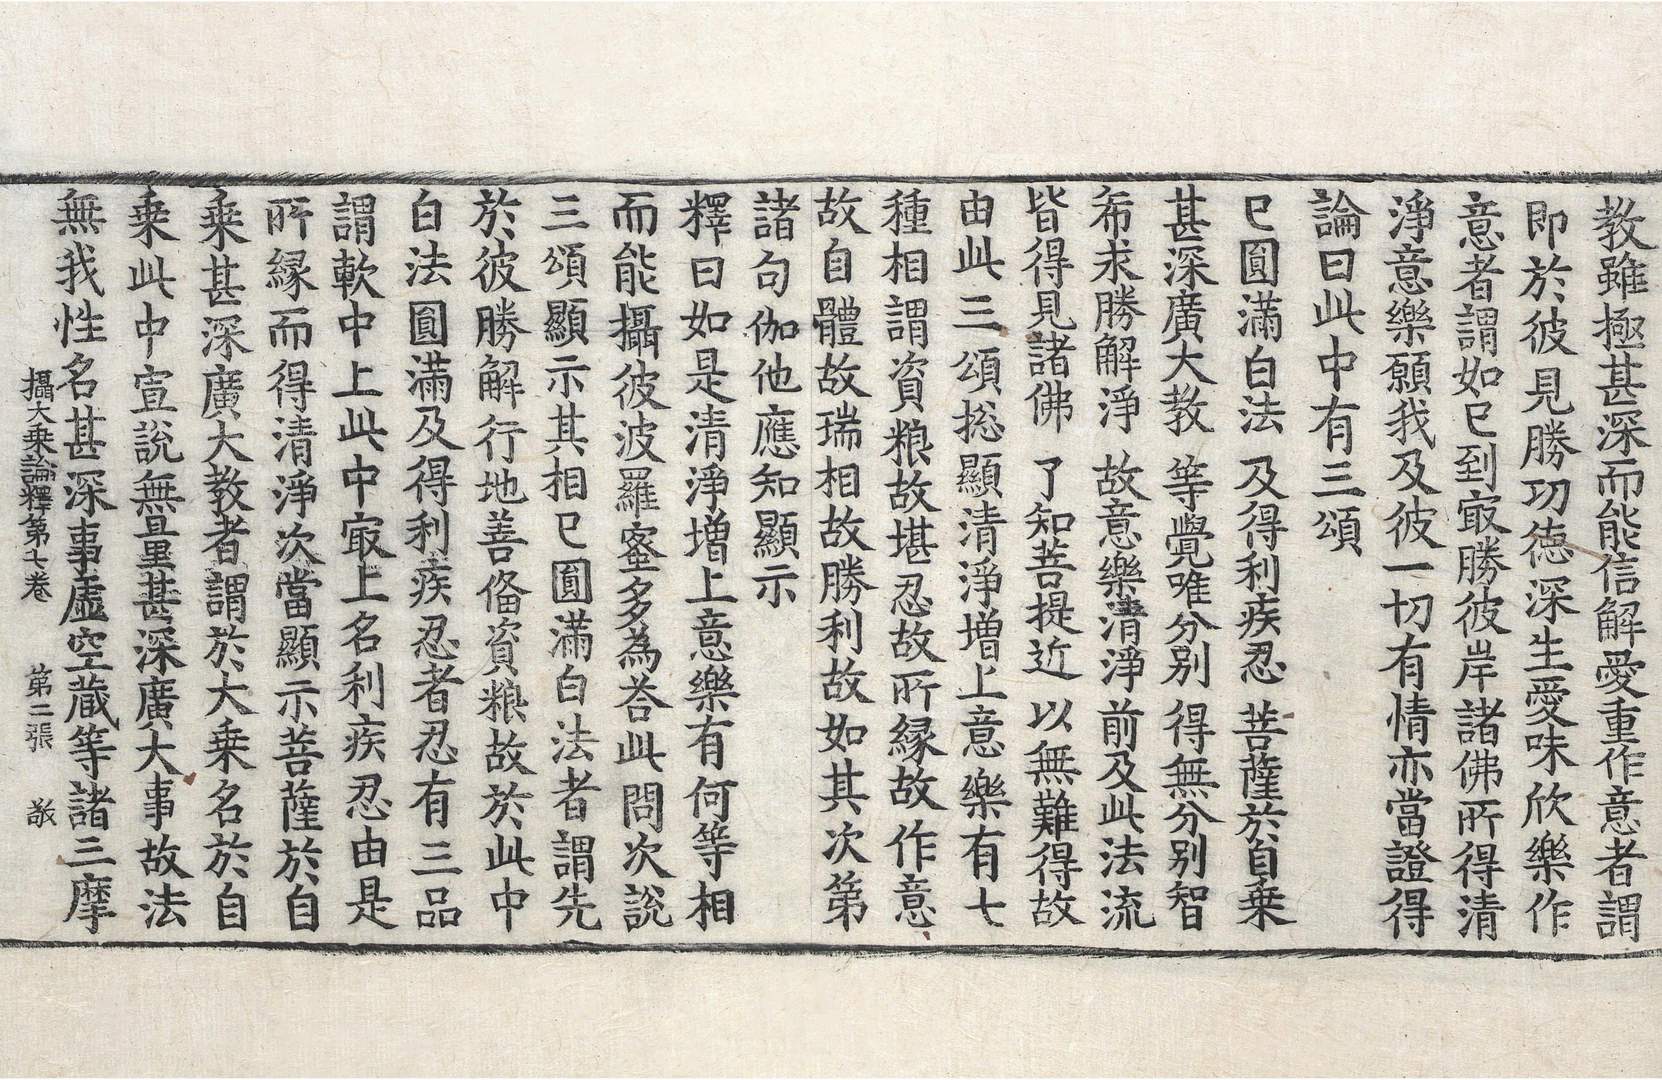 教雖極甚深而能信解愛重作意者謂
即於彼見勝功德深生愛味欣樂作
意者謂如已到㝡勝彼岸諸佛所得清
淨意樂願我及彼一切有情亦當證得
論曰此中有三頌
已圓滿白法　及得利疾忍　菩薩於自乗
甚深廣大教　等覺唯分別　得無分別智
希求勝解淨　故意樂清淨　前及此法流
皆得見諸佛　了知菩提近　以無難得故
由此三頌捴顯清淨增上意樂有七
種相謂資粮故堪忍故所縁故作意
故自體故瑞相故勝利故如其次第
諸句伽他應知顯示
釋曰如是清淨增上意樂有何等相
而能攝彼波羅蜜多為荅此問次說
三頌顯示其相已圓滿白法者謂先
於彼勝解行地善俻資粮故於此中
白法圓滿及得利疾忍者忍有三品
謂軟中上此中㝡上名利疾忍由是
所縁而得清淨次當顯示菩薩於自
乗甚深廣大教者謂於大乗名於自
乗此中宣說無量甚深廣大事故法
無我性名甚深事虛空藏等諸三摩
攝大乗論釋第七卷　第二張　敬